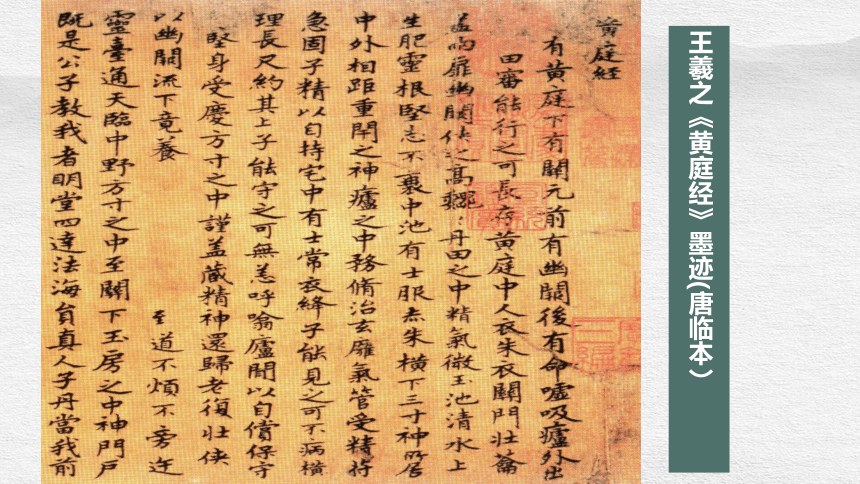 王羲之《黄庭经》墨迹(唐临本)
黄庭经
有黄庭下有關元前有幽闕後有命嘘吸廬外出
田審能行之可長存黄庭中人衣朱衣關門壯蘥
盖兩扉幽闕侠之高巍〻丹田之中精氣微玉池清水上
生肥靈根堅志不衰中池有士服赤朱横下三寸神所居
中外相距重閇之神廬之中務脩治玄廱氣管受精符
急固子精以自持宅中有士常衣絳子能見之可不病横
理長尺約其上子能守之可無恙呼噏廬間以自償保守
堅身受慶方寸之中謹盖藏精神還歸老復壯侠
以幽闕流下竟養 至道不煩不旁迕
靈臺通天臨中野方寸之中至關下玉房之中神門戶
既是公子教我者明堂四達法海員真人子丹當我前